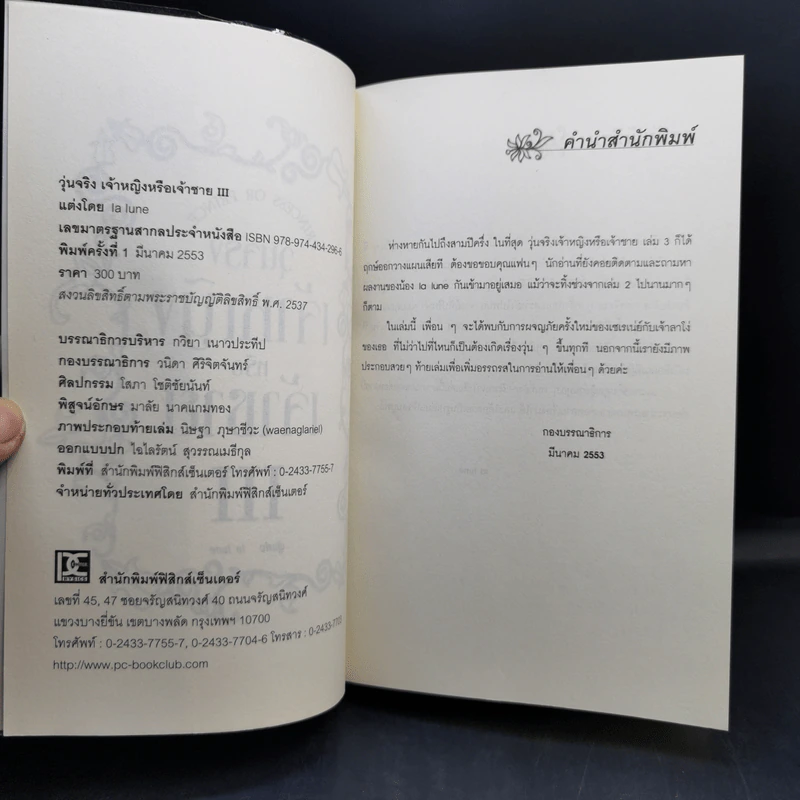 วุ่นจริง เจ้าหญิงหรือเจ้าชาย III
แต่งโดย la lune
เลขมาตรฐานสากลประจำหนังสือ ISBN 978-974-434-296-6
พิมพ์ครั้งที่ 1 มีนาคม 2553
ราคา 300 บาท
สงวนลิขสิทธิ์ตามพระราชบัญญัติลิขสิทธิ์ พ.ศ. 2537
บรรณาธิการบริหาร กวิยา เนาวประทีป
กองบรรณาธิการ วนิดา ศิริจิตจันทร์
ศิลปกรรม โสภา โชติชัยนันท์
พิสูจน์อักษร มาลัย นาคแกมทอง
ภาพประกอบท้ายเล่ม นิษฐา ภุชาชีวะ (waenaglariel)
ออกแบบปก ไอไลรัตน์ สุวรรณเมธีกุล
พิมพ์ที่ สำนักพิมพ์ฟิสิกส์เซ็นเตอร์ โทรศัพท์ : 0-2433-7755-7
จำหน่ายทั่วประเทศโดย สำนักพิมพ์ฟิสิกส์เซ็นเตอร์
สำนักพิมพ์ฟิสิกส์เซ็นเตอร์
เลขที่ 45, 47 ซอยจรัญสนิทวงศ์ 40 ถนนจรัญสนิทวงศ์
แขวงบางยี่ขัน เขตบางพลัด กรุงเทพฯ 10700
โทรศัพท์ : 0-2433-7755-7, 0-2433-7704-6 โทรสาร :
http://www.pc-bookclub.com
คำนำสำนักพิมพ์
ห่างหายกันไปถึงสามปีครึ่ง ในที่สุด วุ่นจริงเจ้าหญิงหรือเจ้าชาย เล่ม 3 ก็ได้
ฤกษ์ออกวางแผนเสียที ต้องขอขอบคุณแฟนๆ นักอ่านที่ยังคอยติดตามและถามหา
ผลงานของน้อง la lune กันเข้ามาอยู่เสมอ แม้ว่าจะทิ้งช่วงจากเล่ม 2 ไปนานมากๆ
ก็ตาม
ในเล่มนี้ เพื่อน ๆ จะได้พบกับการผจญภัยครั้งใหม่ของเซเรเน่ย์กับเจ้าลาโง่
ของเธอ ที่ไม่ว่าไปที่ไหนก็เป็นต้องเกิดเรื่องวุ่น ๆ ขึ้นทุกที นอกจากนี้เรายังมีภาพ
ประกอบสวยๆ ท้ายเล่มเพื่อเพิ่มอรรถรสในการอ่านให้เพื่อนๆ ด้วยค่ะ
กองบรรณาธิการ
มีนาคม 2553